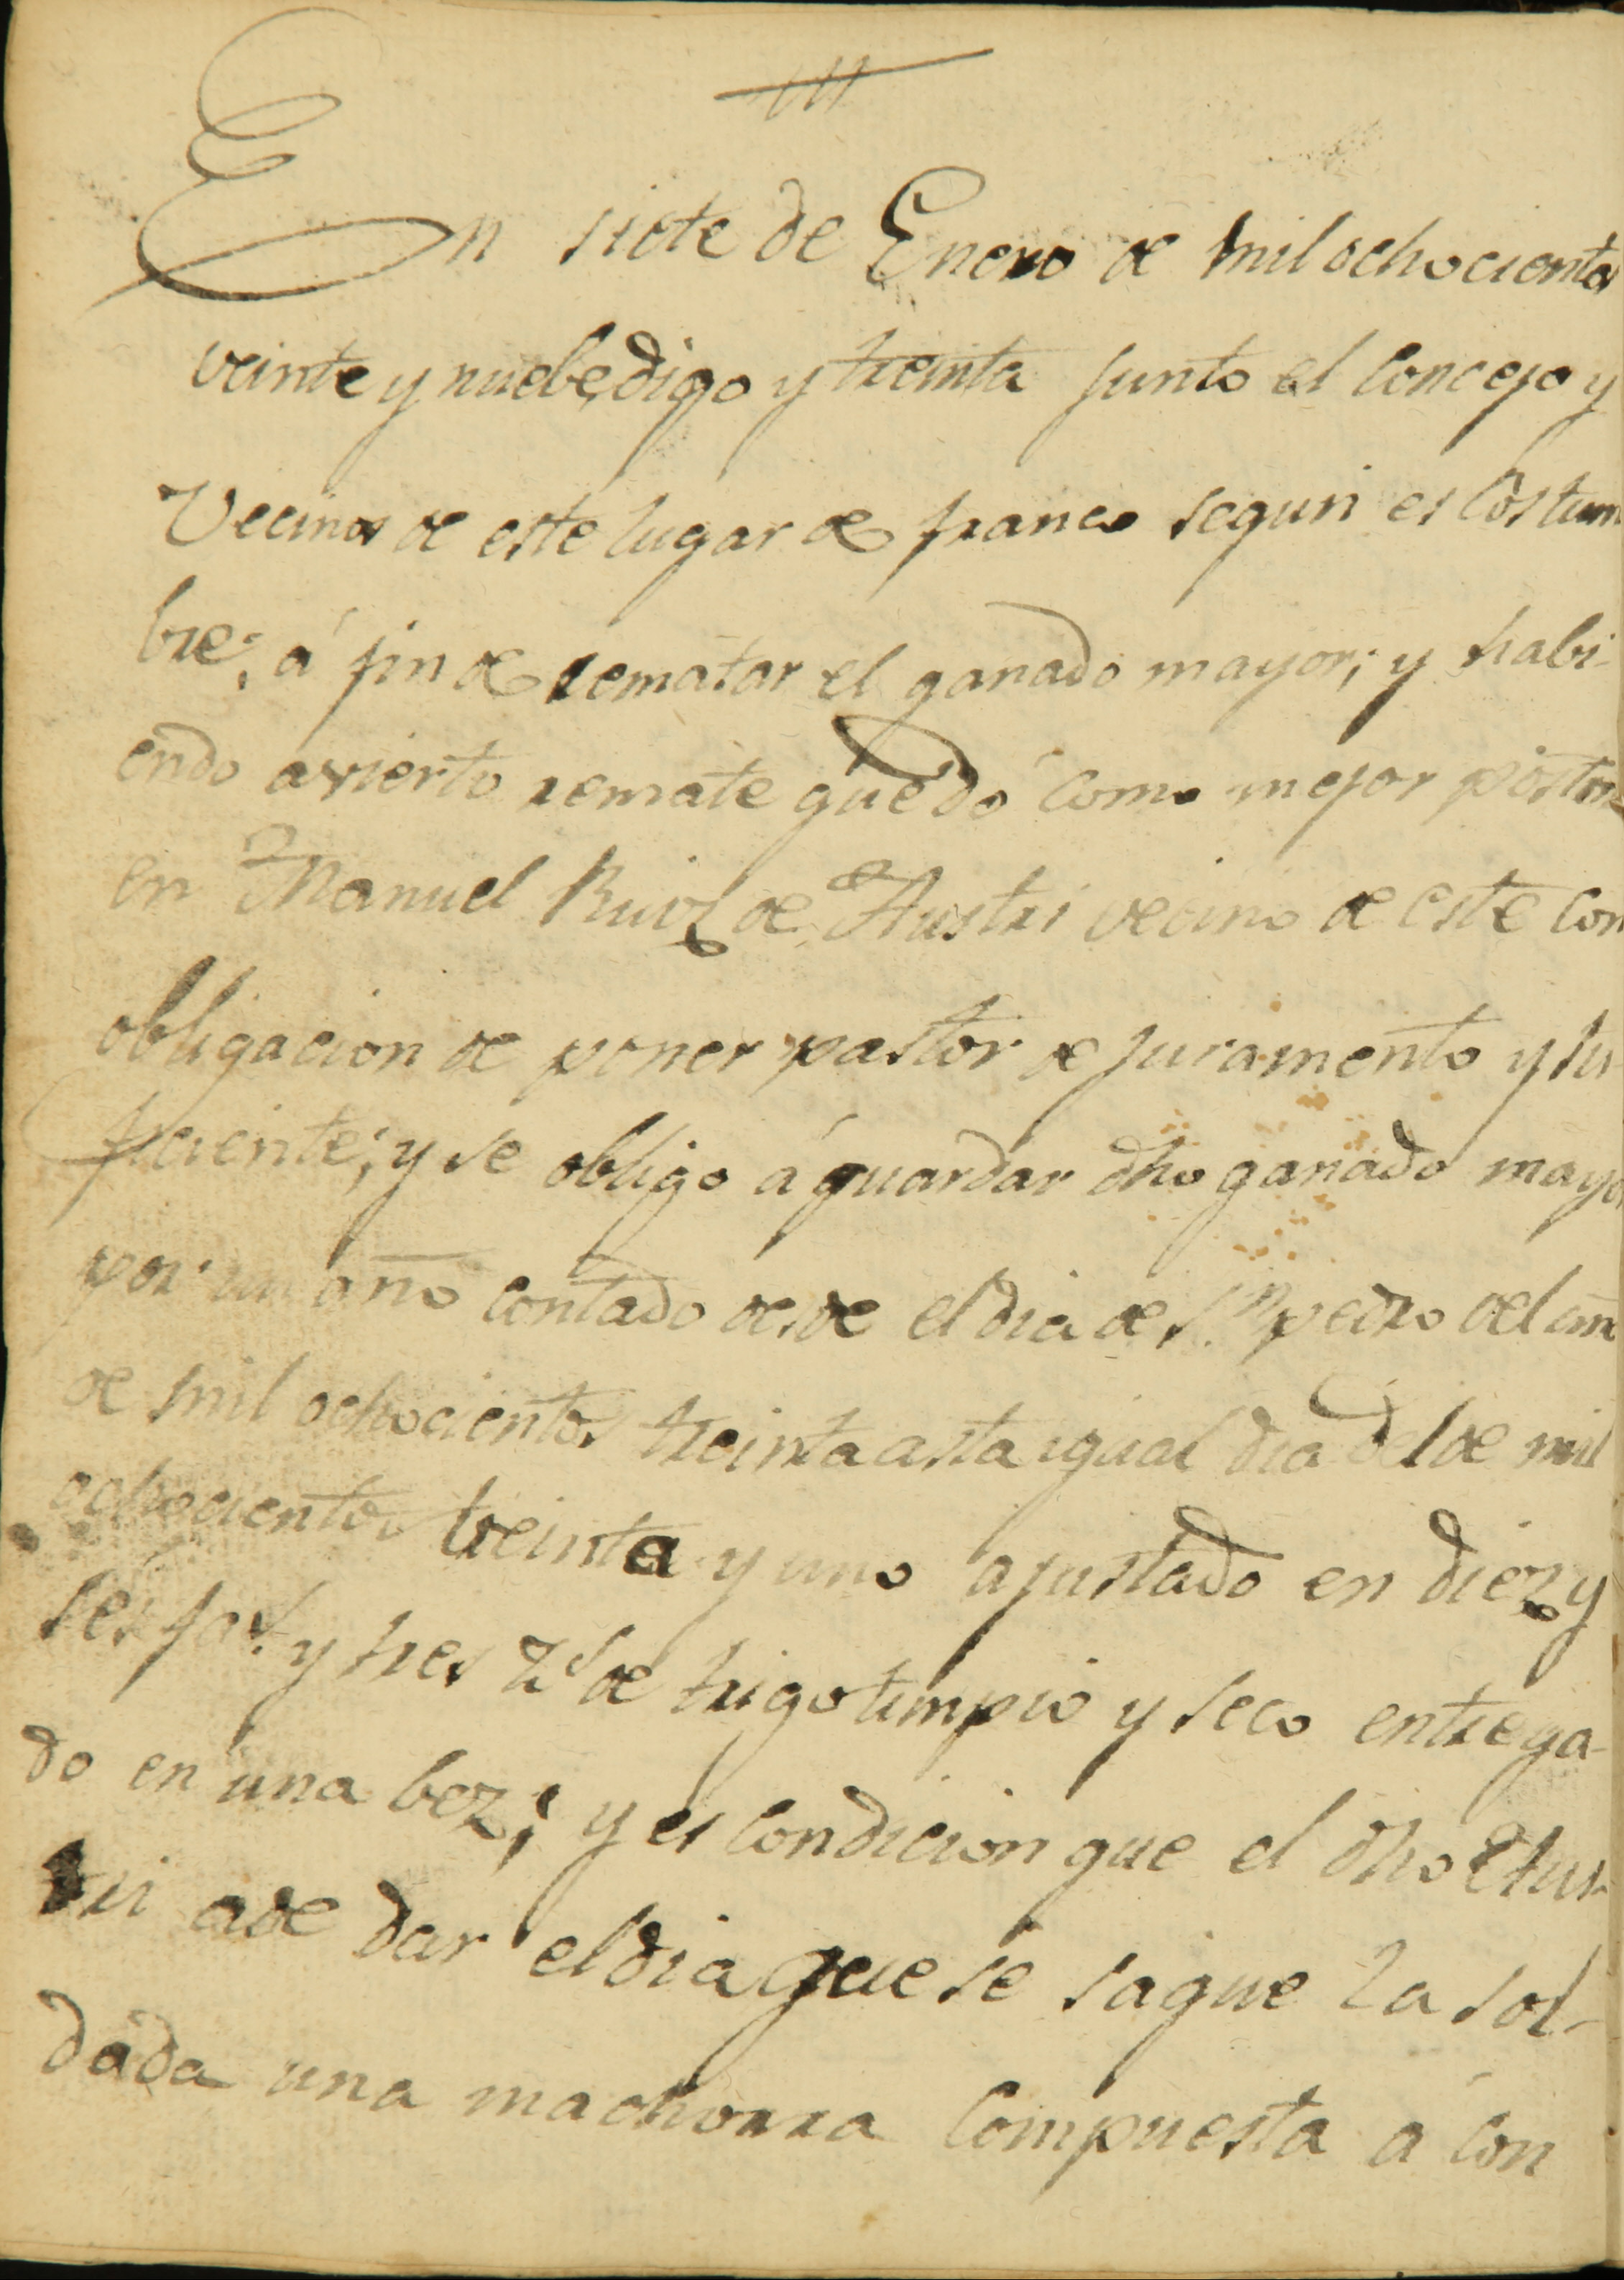 En siete de Enero de mil ochocientos
veinte y nuebe, digo y treinta junto el Concejo y
Vecinos de este lugar de franco segun es Costum
bre; á fin de rematar el ganado mayor; y habi-
endo avierto remate quedó como mejor postor
en Manuel Ruiz de Austri vecino de este con
obligacion de poner pastor de juramento y su-
ficiente; y se obligo á guardar dho ganado mayor
por un año contado desde el dia de Sn. pedro del año
de mil ochocientos treinta asta igual dia del de mil
ochocientos treinta y uno ajustado en diez y
seis fas. y tres zs de trigo limpio y seco entrega-
do en una bez; y es condicion que el dho Aus-
tri ade dar el dia que se saque la sol-
dada una machorra Compuesta a con